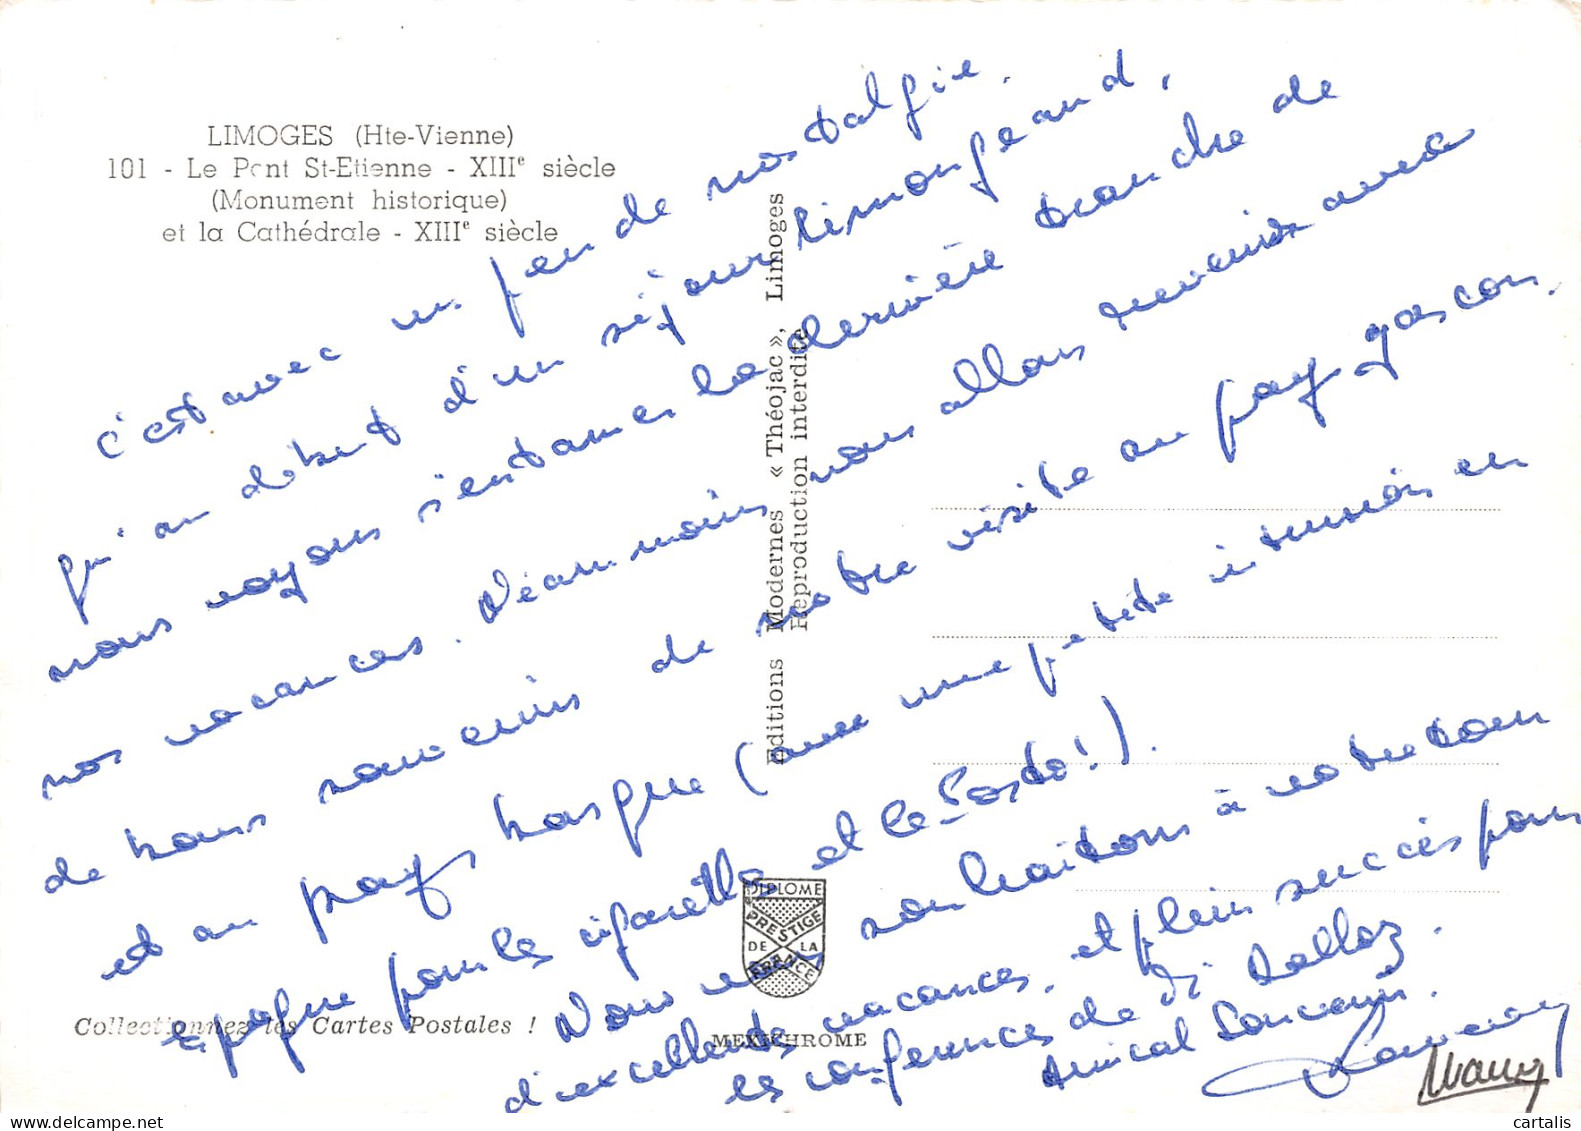 LIMOGES (Hte-Vienne)
101 - Le Pont St-Etienne - XIIIe siècle
(Monument historique)
et la Cathédrale - XIIIe siècle
c'est avec un peu de nostalgie.
qu'au début d'un séjour limougeaud,
nous voyons s'entamer la dernière tranche de
nos vacances. Néanmoins nous allons revenir avec
de bons souvenirs de notre visite au pays gascon.
et au pays basque (avec une petite intrusion en
Espagne pour les cigarettes et le Porto!).
Nous vous souhaitons à votre tour
d'excellentes vacances. et plein succès pour
les conférences de Di Dalloz.
Amical Souvenir.
Editions Modernes « Théojac », Limoges
Reproduction interdite
DIPLOME
PRESTIGE
DE LA
FRANCE
Collectionnez les Cartes Postales !
MEXICHROME
cartalis